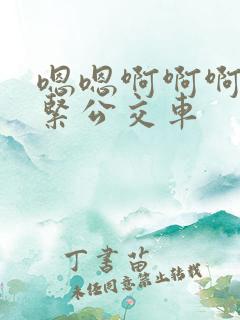 嗯嗯啊啊啊
紧公交车
丁书苗
未经同意禁止转载